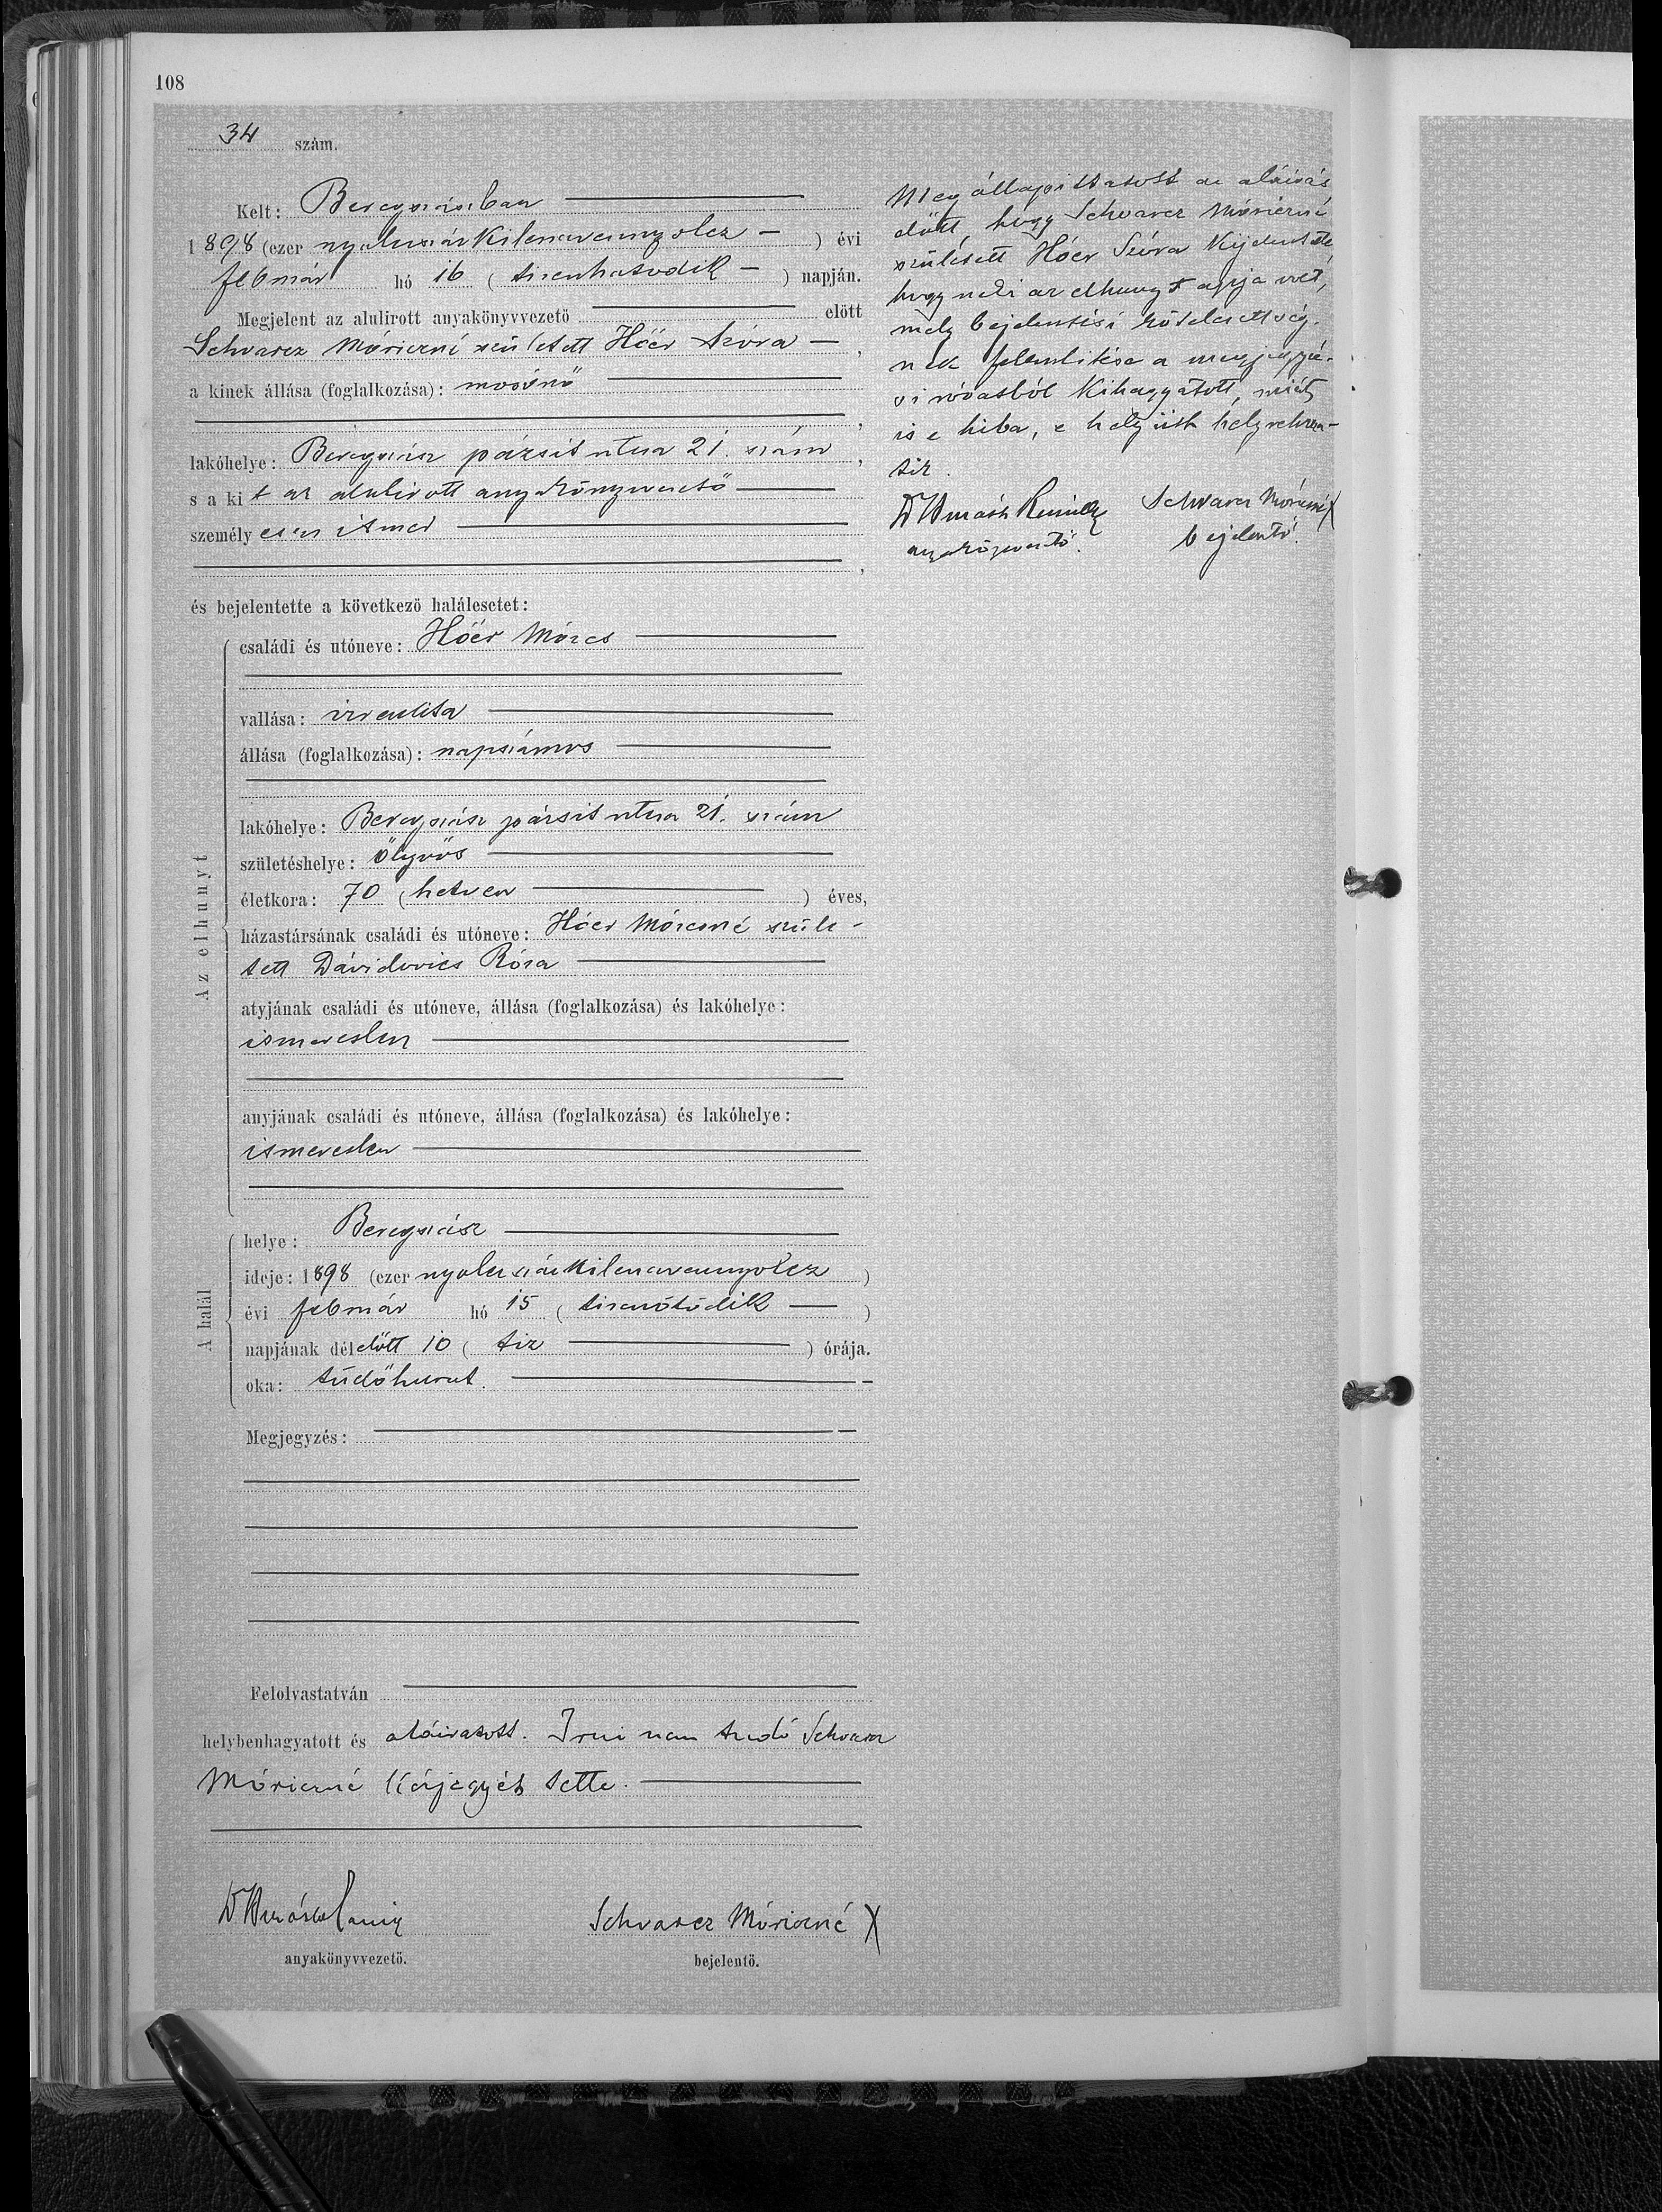 108
34 szám.
Kelt: Beregszászban
1898 (ezer nyolcszázkilencvennyolcz - ) évi
február hó 16 ( tizenhatodik - ) napján.
Megjelent az alulirott anyakönyvvezető előtt
Schvarcz Móriczné született Hóer Száva - ,
a kinek állása (foglalkozása): mosónő
,
lakóhelye: Beregszász pázsit utca 21. szám ,
s a kit az alulirott anyakönyvvezető
személyesen ismer
,
és bejelentette a következő halálesetet:
Az elhunyt
családi és utóneve: Hóer Mórcs
vallása: izraelita
állása (foglalkozása): napszámos
lakóhelye: Beregszász pázsit utca 21. szám
születéshelye: ölyvös
életkora: 70 ( hetven ) éves,
házastársának családi és utóneve: Hóer Mórcsné szüle-
tett Dávidovics Róza
atyjának családi és utóneve, állása (foglalkozása) és lakóhelye:
ismeretlen
anyjának családi és utóneve, állása (foglalkozása) és lakóhelye:
ismeretlen
A halál
helye: Beregszász
ideje: 1898 (ezer nyolcszázkilencvennyolcz )
évi február hó 15 ( tizenötödik )
napjának délelőtt 10 ( tiz ) órája.
oka: tüdőhurut.
Megjegyzés:
Felolvastatván
helybenhagyatott és aláiratott. Irni nem tudó Schvarcz
Móriczné kézjegyét tette.
Schvarcz Móriczné X
anyakönyvvezető.
bejelentő.
Megállapittatott az aláirás
előtt, hogy Schvarcz Móriczné
született Hóer Száva kijelentette
hogy neki az elhunyt apja volt,
mely bejelentési kötelezettség-
nek felemlitése a megjegyzé-
si rovatból kihagyatott, miért
is e hiba, e helyütt helyrehoza-
tik.
Schvarcz Móriczné X
anyakönyvvezető.
bejelentő.